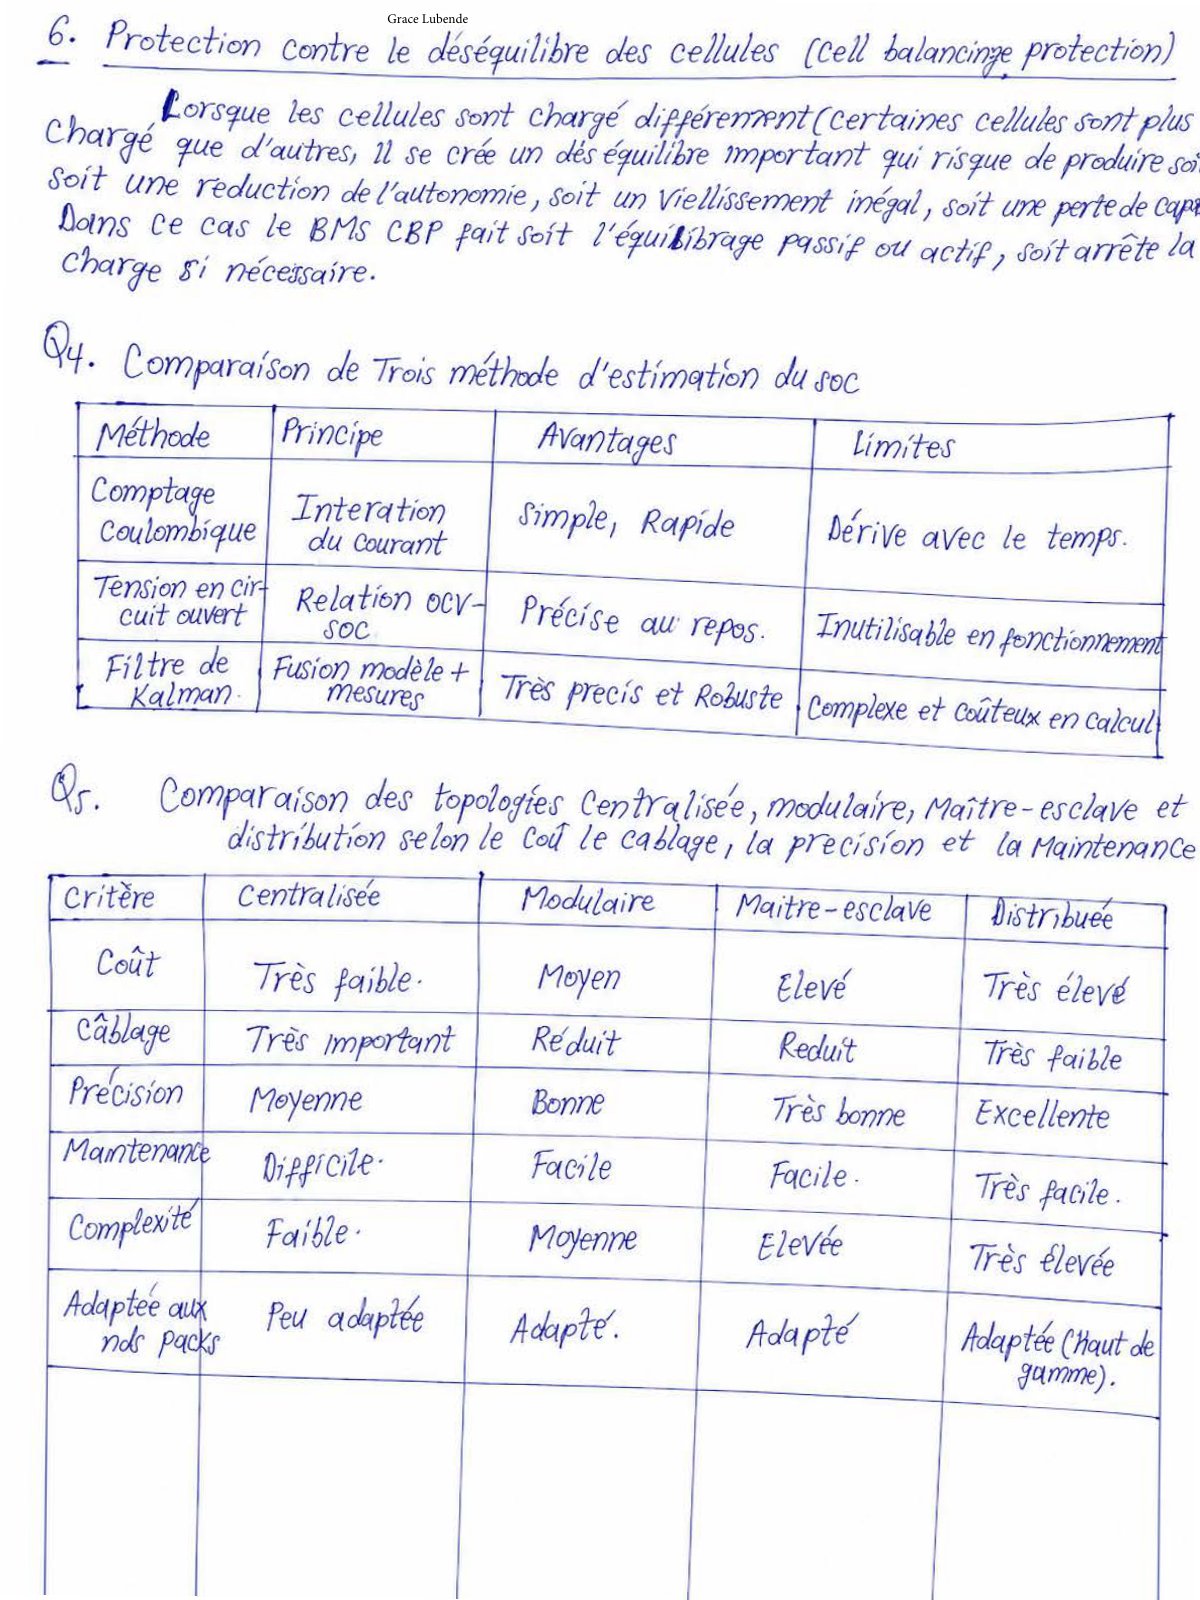 Grace Lubende
6. Protection contre le déséquilibre des cellules (cell balancinge protection)
Lorsque les cellules sont chargé différemment (certaines cellules sont plus
chargé que d'autres, Il se crée un déséquilibre important qui risque de produire soi
soit une réduction de l'autonomie, soit un viellissement inégal, soit une perte de capa
Dans ce cas le BMS CBP fait soit l'équilibrage passif ou actif, soit arrête la
charge si nécessaire.
Q4. Comparaison de Trois méthode d'estimation du SOC
Méthode Principe Avantages Limites
Comptage coulombique Interation du courant Simple, Rapide Dérive avec le temps.
Tension en cir-cuit ouvert Relation OCV-SOC Précise au repos. Inutilisable en fonctionnement
Filtre de Kalman. Fusion modèle + mesures Très precis et Robuste Complexe et coûteux en calcul
Q5. Comparaison des topologies Centralisée, modulaire, Maître-esclave et
distribution selon le Coû le cablage, la precision et la Maintenance
Critère Centralisée Modulaire Maitre-esclave Distribuée
Coût Très faible. Moyen Elevé Très élevé
Câblage Très important Réduit Reduit Très faible
Précision Moyenne Bonne Très bonne Excellente
Maintenance Difficile. Facile Facile. Très facile.
Complexité Faible. Moyenne Elevée Très élevée
Adaptée aux nds packs Peu adaptée Adapté. Adapté Adaptée (Haut de gamme).